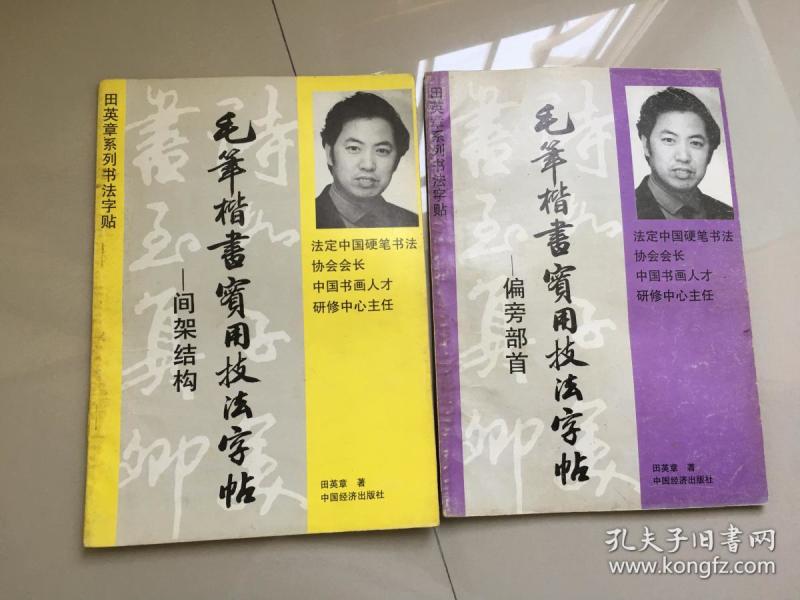 田英章系列书法字贴
毛筆楷書實用技法字帖
—间架结构
法定中国硬笔书法
协会会长
中国书画人才
研修中心主任
田英章 著
中国经济出版社
田英章系列书法字贴
毛筆楷書實用技法字帖
—偏旁部首
法定中国硬笔书法
协会会长
中国书画人才
研修中心主任
田英章 著
中国经济出版社
孔夫子旧书网
www.kongfz.com